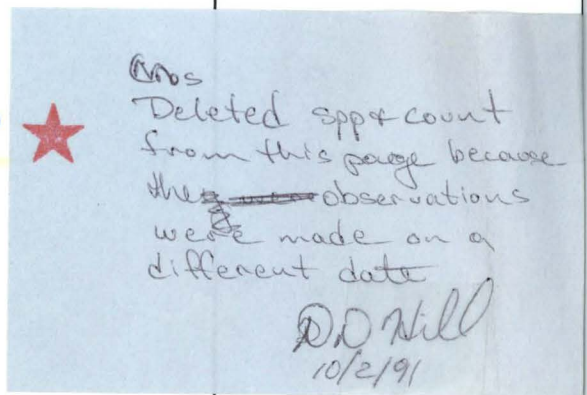 Deleted spp & count
from this page because
the observations
were made on a
different date
D.D Hill
10/2/91